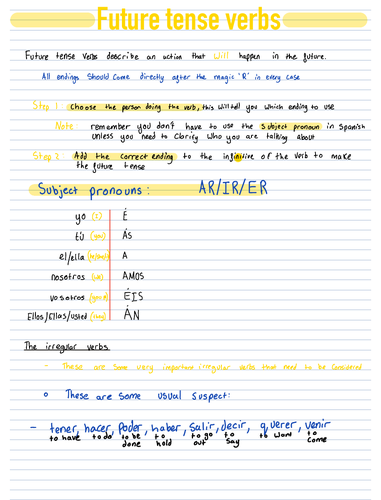 Future tense verbs
Future tense verbs describe an action that will happen in the future.
All endings should come directly after the magic 'R' in every case
Step 1: Choose the person doing the verb, this will tell you which ending to use
Note: remember you don't have to use the subject pronoun in Spanish
unless you need to clarify who you are talking about
Step 2: Add the correct ending to the infinitive of the verb to make
the future tense
Subject pronouns: AR/IR/ER
yo (I) É
tú (you) ÁS
el/ella A
nosotros (we) AMOS
vosotros ÉIS
Ellos/Ellas/usted (they) ÁN
The irregular verbs
- These are some very important irregular verbs that need to be considered
These are some usual suspect:
- tener, hacer, poder, haber, salir, decir, querer, venir
to have to do to be to to go to to want to
done hold out say come